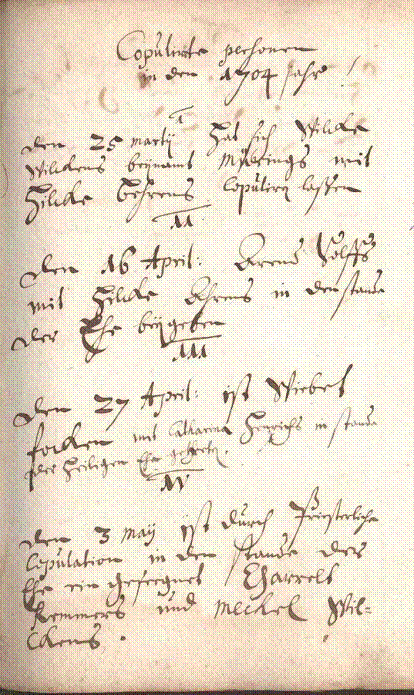 Copulirte personen
in dem 1704 Jahr
I
den 25 martij hat sich Wilcke
Wilckens beynamt mit
Hilcke Behrens Copuliren lassen
II
Den 16 April: Arend
mit Hilcke Ahrens in den stande
der Ehe beÿgeben
III
Den 27 April: ist Wiebet
focken mit Catharina Hinrichs in stande
der Heiligen Ehe getreten.
IV
den 3 maÿ ist durch Priesterliche
Copulation in den stande des
Ehe ein gesegnet Gharrelt
Remmers und Meckel Wil=
ckens.